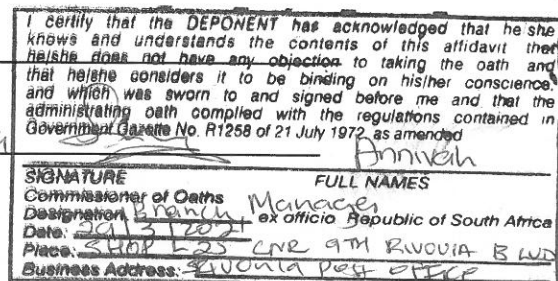 I certify that the DEPONENT has acknowledged that he she
knows and understands the contents of this affidavit that
he/she does not have any objection to taking the oath and
that he/she considers it to be binding on his/her conscience,
and which was sworn to and signed before me and that the
administrating oath complied with the regulations contained in
Government Gazette No. R1258 of 21 July 1972, as amended
Annivah
SIGNATURE FULL NAMES
Commissioner of Oaths
Designation Branch Manager ex officio Republic of South Africa
Date: 29/3/2021
Place: SHOP L25 CNR 9TH RIVONIA BLVD
Business Address: Rivonia Post Office